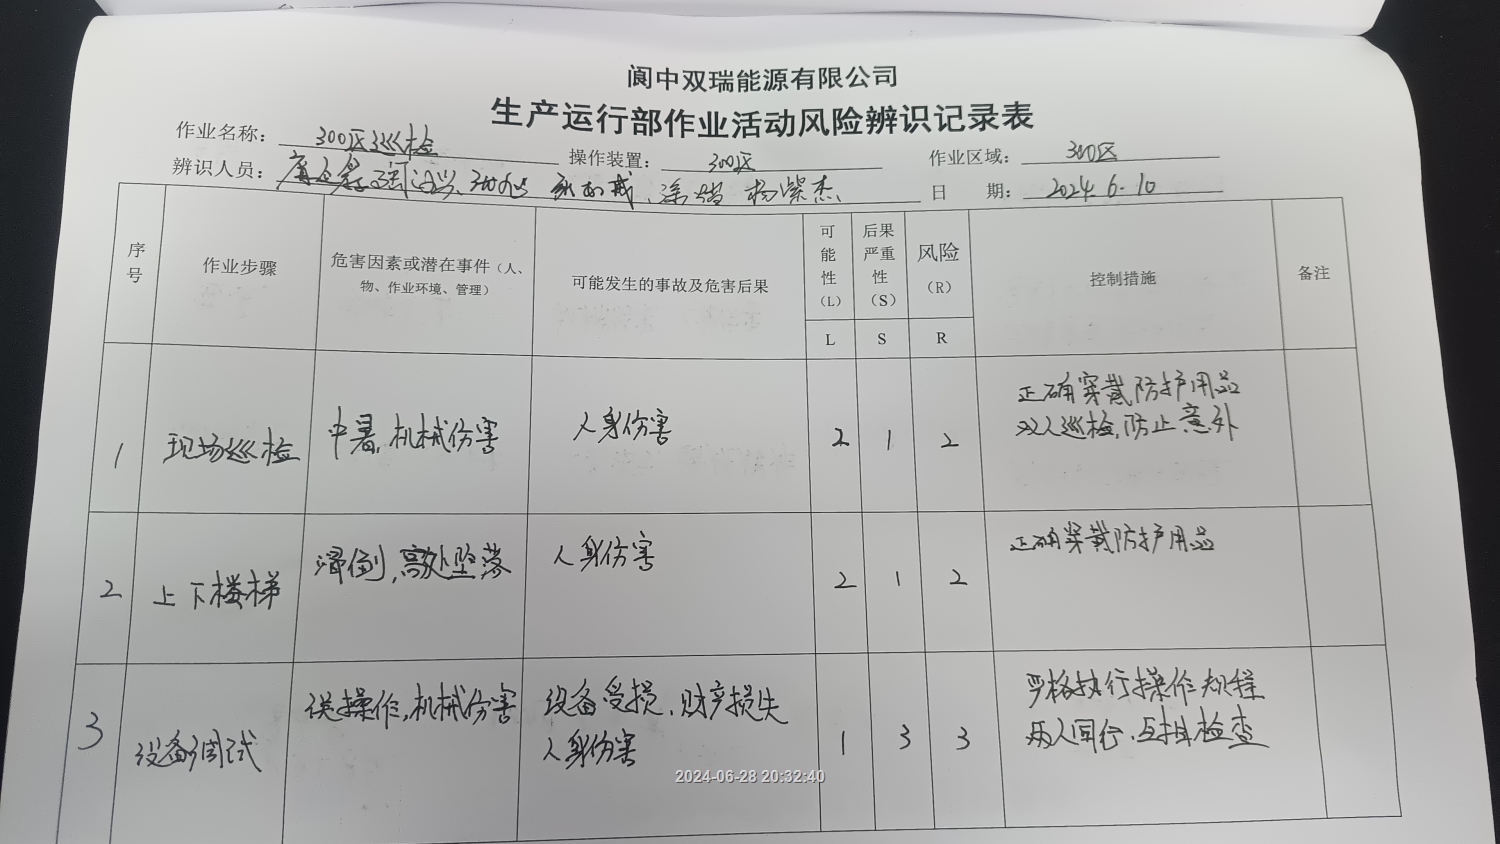 阆中双瑞能源有限公司
生产运行部作业活动风险辨识记录表
作业名称： 300区巡检 操作装置： 300区 作业区域： 300区
辨识人员： 杨紫杰 日 期： 2024.6.10
序号 作业步骤 危害因素或潜在事件（人、物、作业环境、管理） 可能发生的事故及危害后果 可能性（L） 后果严重性（S） 风险（R） 控制措施 备注
L S R
1 现场巡检 中暑，机械伤害 人身伤害 2 1 2 正确穿戴防护用品
双人巡检，防止意外
2 上下楼梯 滑倒，高处坠落 人身伤害 2 1 2 正确穿戴防护用品
3 设备调试 误操作，机械伤害 设备受损、财产损失 1 3 3 严格执行操作规程
人身伤害 两人同行、互相检查
2024-06-28 20:32:40